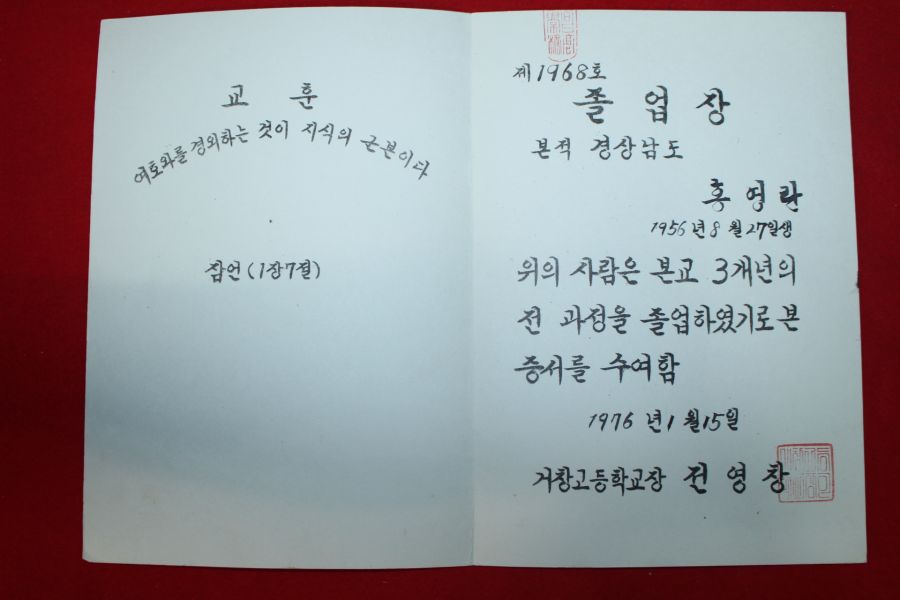 교 훈
여호와를 경외하는 것이 지식의 근본이다
잠언 (1장 7절)
제1968호
졸 업 장
본적 경상남도
홍영란
1956년 8월 27일생
위의 사람은 본교 3개년의
전 과정을 졸업하였기로 본
증서를 수여함
1976년 1월 15일
거창고등학교장 전영창